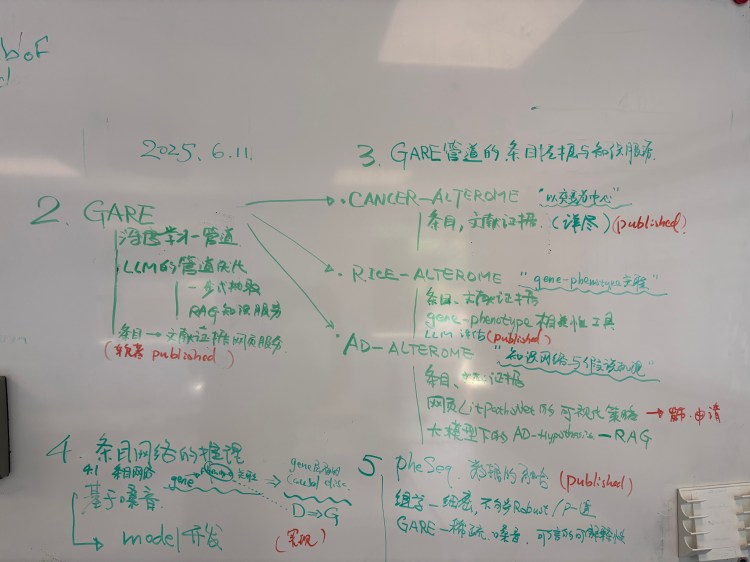 b'of
2025.6.11.
2. GARE
深度学习-管道
LLM的管道优化
一步式抽取
RAG知识服务
条目→文献证据网页服务
(软著 published)
3. GARE管道的条目挖掘与知识服务
· CANCER-ALTEROME "以突变为中心"
条目,文献证据.(详尽)(published)
· RICE-ALTEROME "gene-phenotype关联"
条目、文献证据
gene-phenotype相关性工具
LLM评估(published)
· AD-ALTEROME "知识网络与假设发现"
条目、文献证据
网页LitPathoNet的可视化策略→ 申请
大模型下的AD-Hypothesis-RAG
4. 条目网络的推理
4.1 条目网络
gene 关联 ⇒ gene
causal
基于噪音
D⇒G
model开发 (实现)
5 pheSeq. 数据的融合 (published)
组学-细粒,不够Robust/
GARE-稀疏、噪音,可信的可解释性